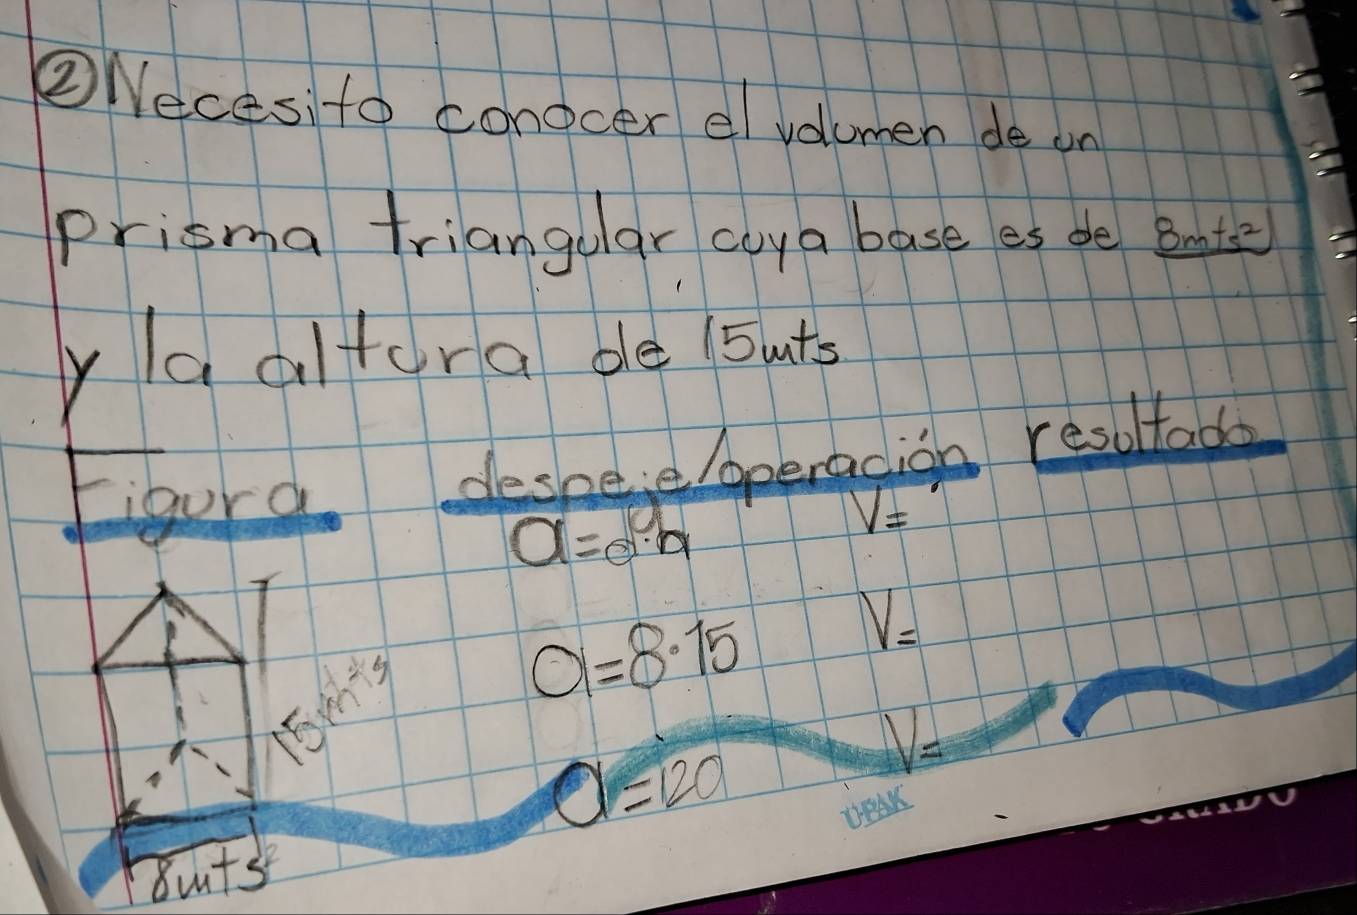 ② Necesito conocer el volumen de un
prisma triangular cuya base es de 8mts²
y la altura de 15mts
Figura despeje/operación resultado
a=d·h V=
a=8·15 V=
15mts
a=120 V=
UPAK
8mts²